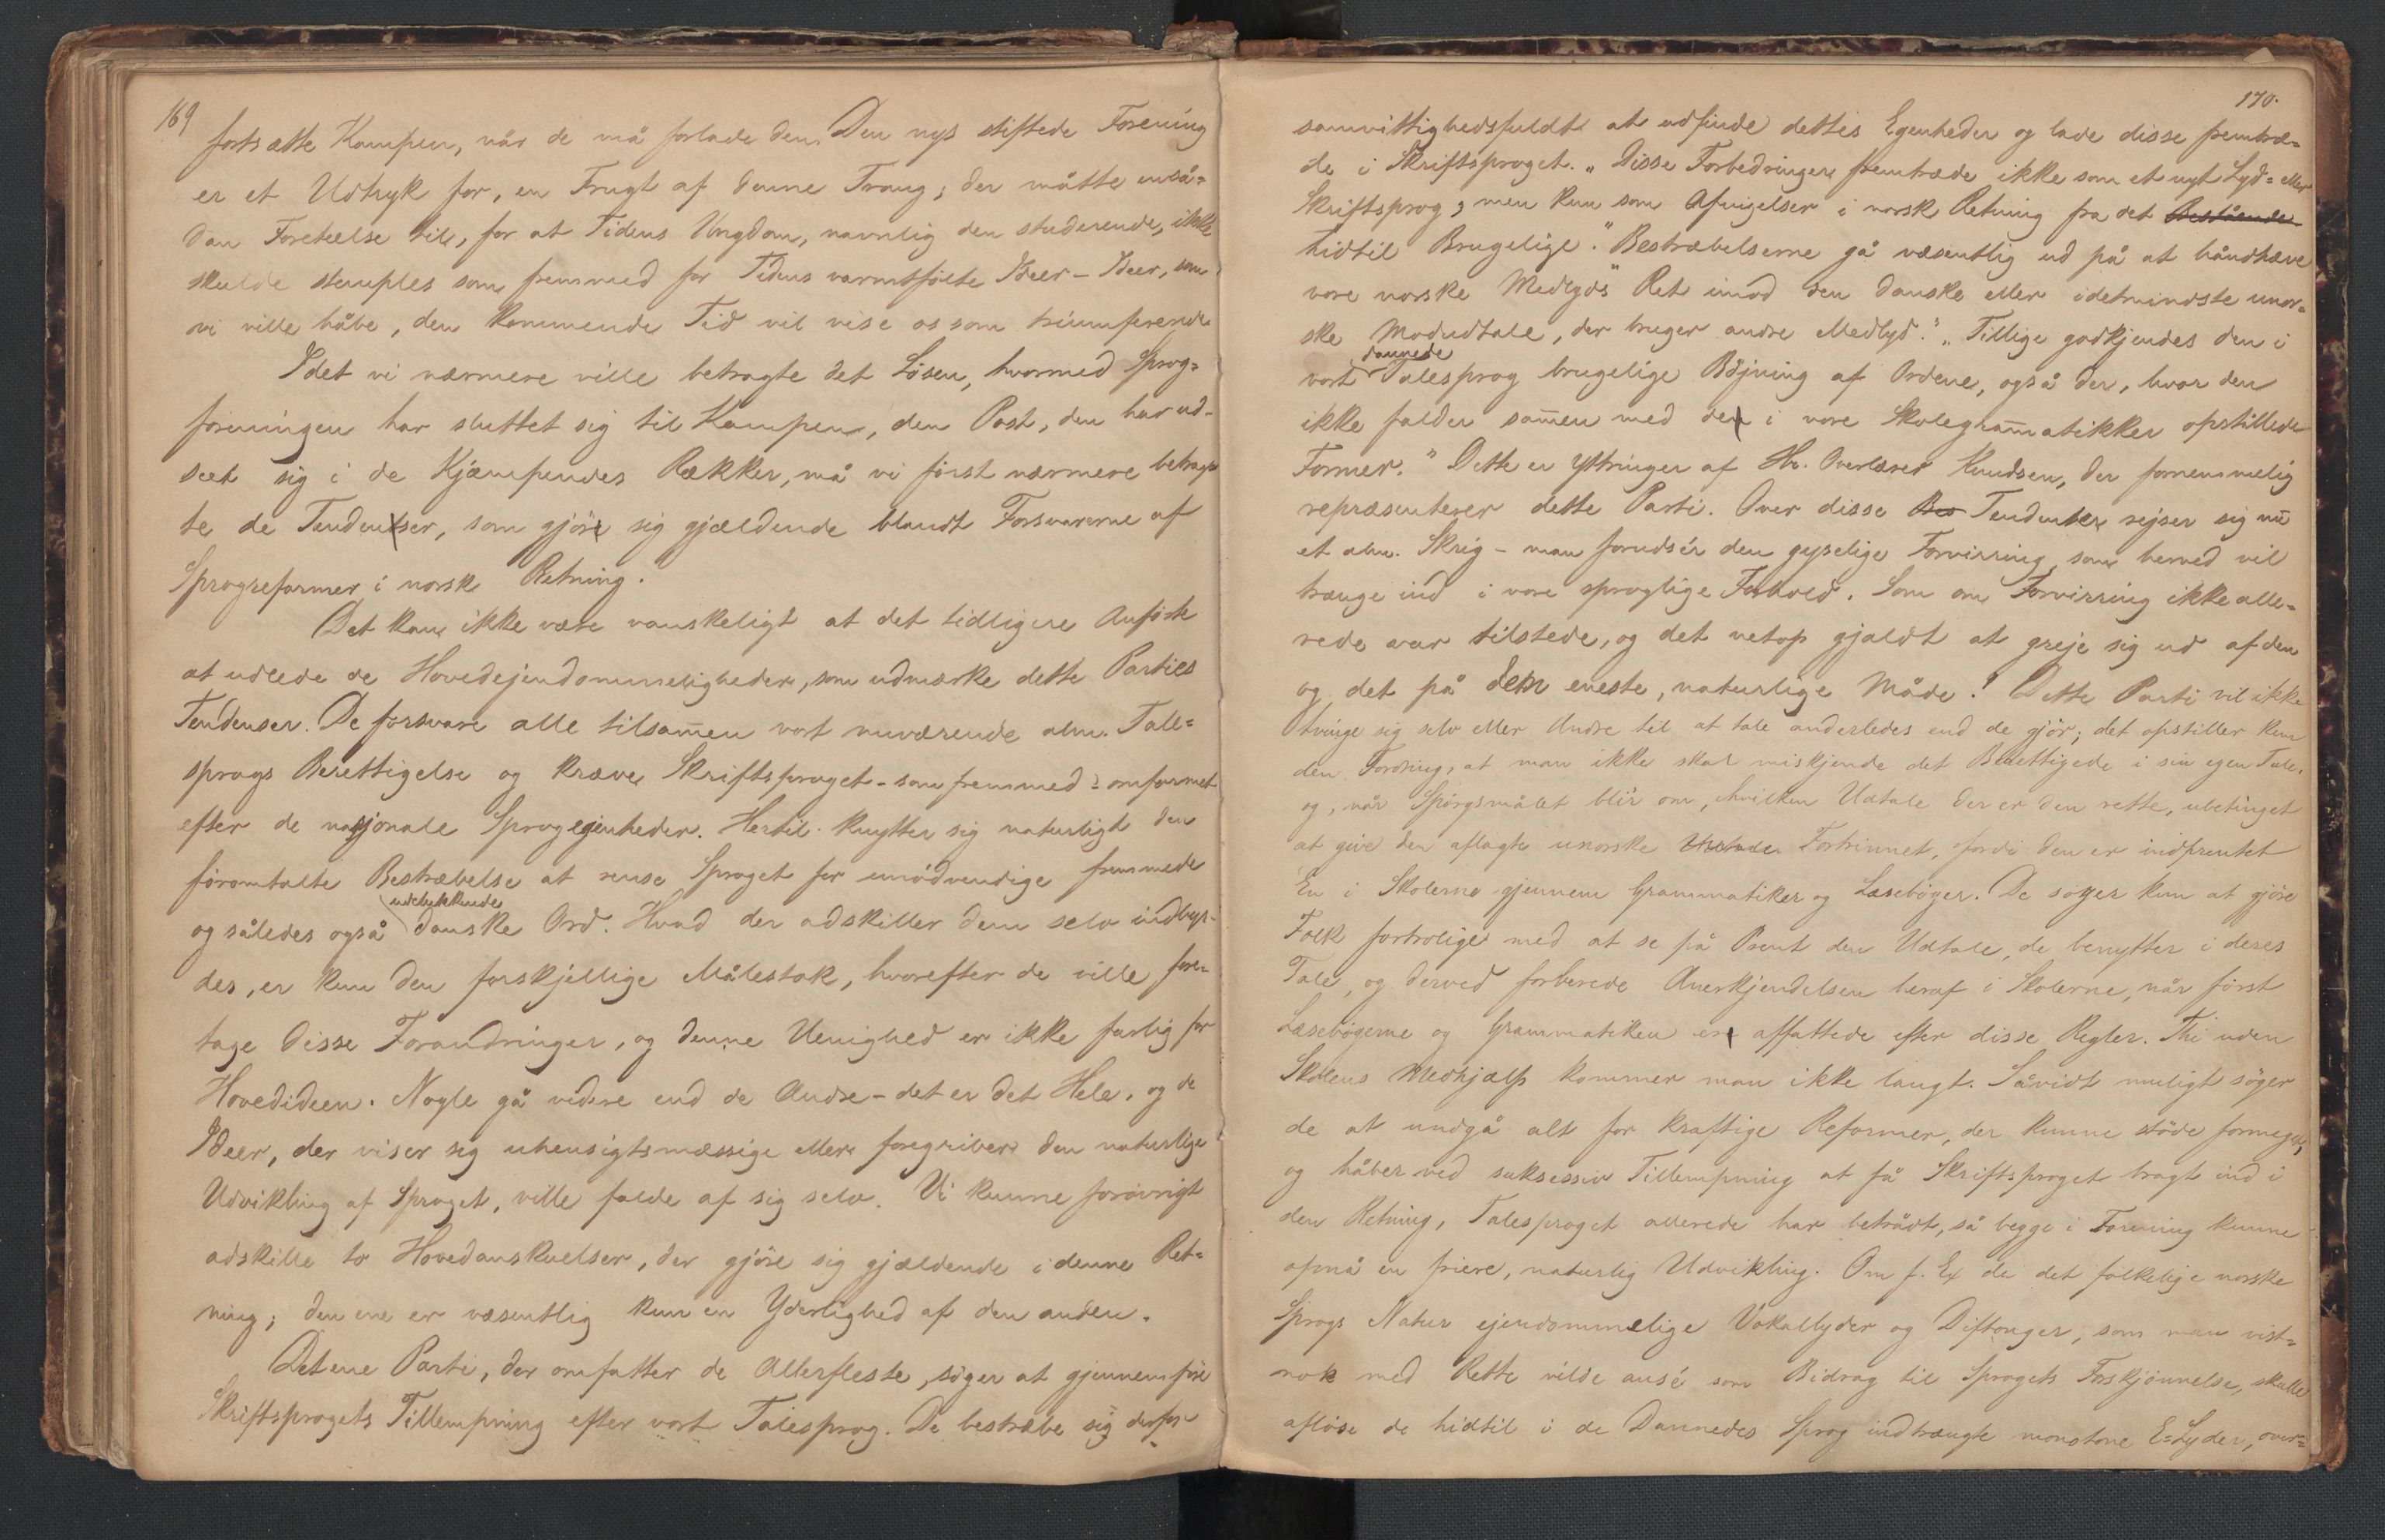 169
fortsætte Kampen, når de må forlade den. Den nys stiftede Forening
er et Udtryk for, en Frugt af denne Trang; der måtte enså-
dan Foreteelse til, for at Tidens Ungdom, navnlig den studerende, ikke
skulde stemples som fremmed for Tidens varmtfølte Ideer – Ideer, som
vi ville håbe, den kommende Tid vil vise os som triumferende
Idet vi nærmere ville betragte det Løsen, hvormed Sprog=
foreningen har sluttet sig til Kampen, den Post, den har ud-
seet sig i de Kjæmpendes Rækker, må vi først nærmere betrag
te de Tendenser, som gjöre sig gjældende blandt Forsvarerne af
Sprogreformer i norsk Retning.
Det kan ikke være vanskeligt at det tidligere Anførte
at udlede de Hovedejendommeligheder, som udmærke dette Parties
Tendenser. De forsvare alle tilsam̄en vort nuværende alm. Tale=
sprogs Berettigelse og kræve Skriftsproget – som fremmed – omformet
efter de nasjonale Sprogegenheder. Hertil knytter sig naturligt den
föromtalte Bestræbelse at rense Sproget for unödvendige fremmede
udelukkende
og således også danske Ord. Hvad der adskiller dem selv indbyr-
des, er kun den forskjellige Målestok, hvorefter de ville fore-
tage disse Forandringer, og denne Uenighed er ikke farlig for
Hovedideen. Nogle gå videre end de Andre – det er det Hele, og de
Ideer, der viser sig uhensigtsmæssige eller foregriber den naturlige
Udvikling af Sproget, ville falde af sig selv. Vi kunne forövrigt
adskille to Hovedanskuelser, der gjöre sig gjældende i denne Ret=
ning; den ene er væsentlig kun en Yderlighed af den anden.
Det ene Parti, der omfatter de Allerfleste, söger at gjennemföre
Skriftsprogets Tillempning efter vort Talesprog. De bestræbe sig derfor
170.
samvittighedsfuldt at udfinde dettes Egenheder og lade disse fremtræ=
de i Skriftsproget. „Disse Forbedringer fremtræde ikke som et nyt Lyd= eller
Skriftsprog, men kun som Afvigelser i norsk Retning fra det Bestående
hidtil Brugelige." Bestræbelserne gå væsentlig ud på at håndhæve
vore norske Medlyds" Ret imod den danske eller idetmindste unor=
ske Modudtale, der bruger andre Medlyd." „Tillige godkjendes den i
dannede
vort Talesprog brugelige Böjning af Ordene, også der, hvor den
ikke falder sam̄en med den i vore Skolegram̄atikker opstillede
Former." Dette er Yttringer af Hr. Overlærer Knudsen, der fornemmelig
repræsenterer dette Parti. Over disse Bes Tendenser rejser sig nu
et alm. Skrig – man forudsér den gyselige Forvirring, som herved vil
trænge ind i vore sproglige Forhold. Som om Forvirring ikke alle=
rede var tilstede, og det netop gjaldt at greje sig ud af den
og det på den eneste, naturlige Måde! Dette Parti vil ikke
tvinge sig selv eller Andre til at tale anderledes end de gjör; det opstiller kun
den Fordring, at man ikke skal miskjende det Berettigede i sin egen Tale,
og, når Spörgsmålet blir om, hvilken Udtale der er den rette, ubetinget
at give den aflagte unorske Udtale Fortrinnet, fordi den er indprentet
En i Skolerne gjennem Grammatiker og Læseböger. De söger kun at gjöre
Folk fortrolige med at se på Prent den Udtale, de benytter i deres
Tale, og derved forberede Anerkjendelsen heraf i Skolerne, når först
Læsebögerne og Grammatiken er affattede efter disse Regler. Thi uden
Skolens Medhjælp kommer man ikke langt. Såvidt muligt söger
de at undgå alt for kraftige Reformer, der kunne stöde formeget,
og håber ved suksessiv Tillempning at få Skriftsproget bragt ind i
den Retning, Talesproget allerede har betrådt, så begge i Forening kunne
opnå en friere, naturlig Udvikling. Om f. Ex de det folkelige norske
Sprogs Natur ejendommelige Vokallyder og Diftonger, som man vist=
nok med Rette vilde ansé som Bidrag til Sprogets Forskjönnelse, skulle
aflöse de hidtil i de Dannedes Sprog indtrængte monotone E=Lyder, over=